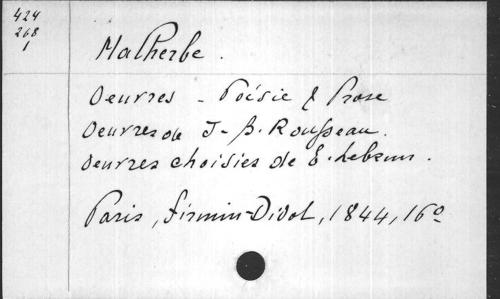 424
268
1
Malherbe.
Oeuvres - Poésie & Prose
Oeuvres de J-B. Rousseau.
Oeuvres choisies de E. Lebrun.
Paris, Firmin-Didot, 1844, 16º